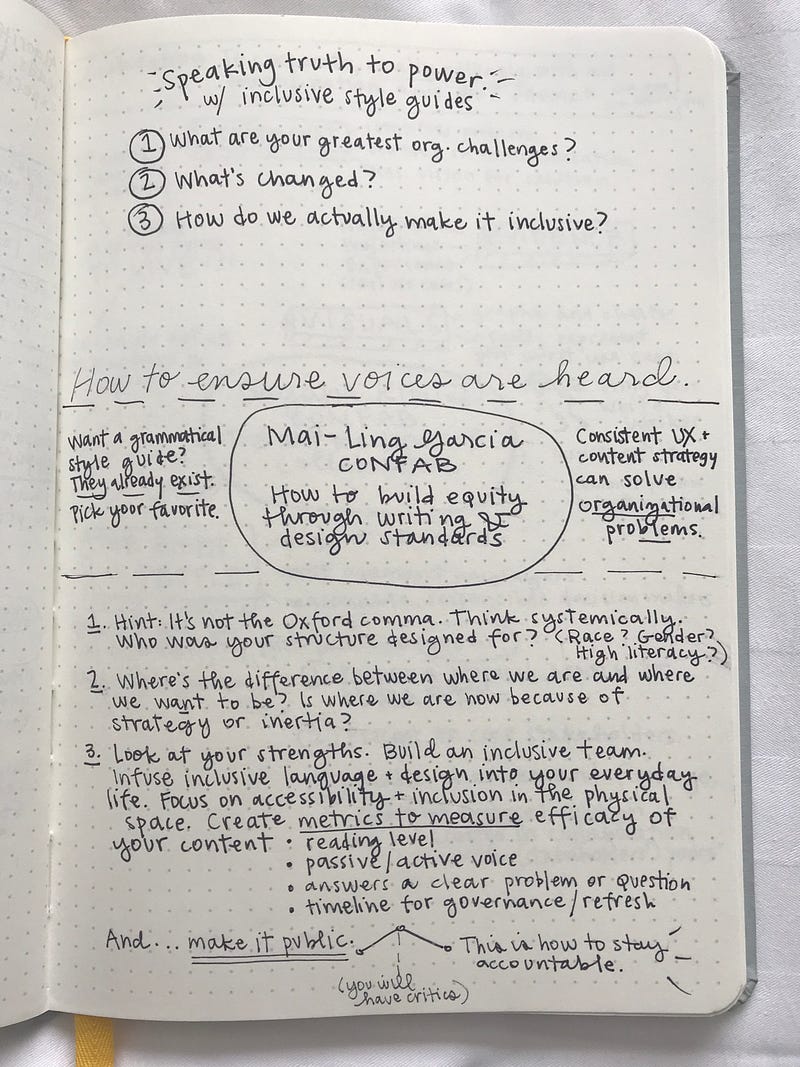 Speaking truth to power
w/ inclusive style guides
1 What are your greatest org. challenges?
2 What's changed?
3 How do we actually make it inclusive?
How to ensure voices are heard.
Want a grammatical
style guide?
They already exist.
Pick your favorite.
Mai-Ling Garcia
CONFAB
How to build equity
through writing &
design standards
Consistent UX +
content strategy
can solve
organizational
problems.
1. Hint: It's not the Oxford comma. Think systemically.
Who was your structure designed for? (Race? Gender?
High literacy?)
2. Where's the difference between where we are and where
we want to be? Is where we are now because of
strategy or inertia?
3. Look at your strengths. Build an inclusive team.
Infuse inclusive language + design into your everyday
life. Focus on accessibility + inclusion in the physical
space. Create metrics to measure efficacy of
your content • reading level
• passive/active voice
• answers a clear problem or question
• timeline for governance/refresh
And... make it public. This is how to stay
accountable.
(you will
have critics)